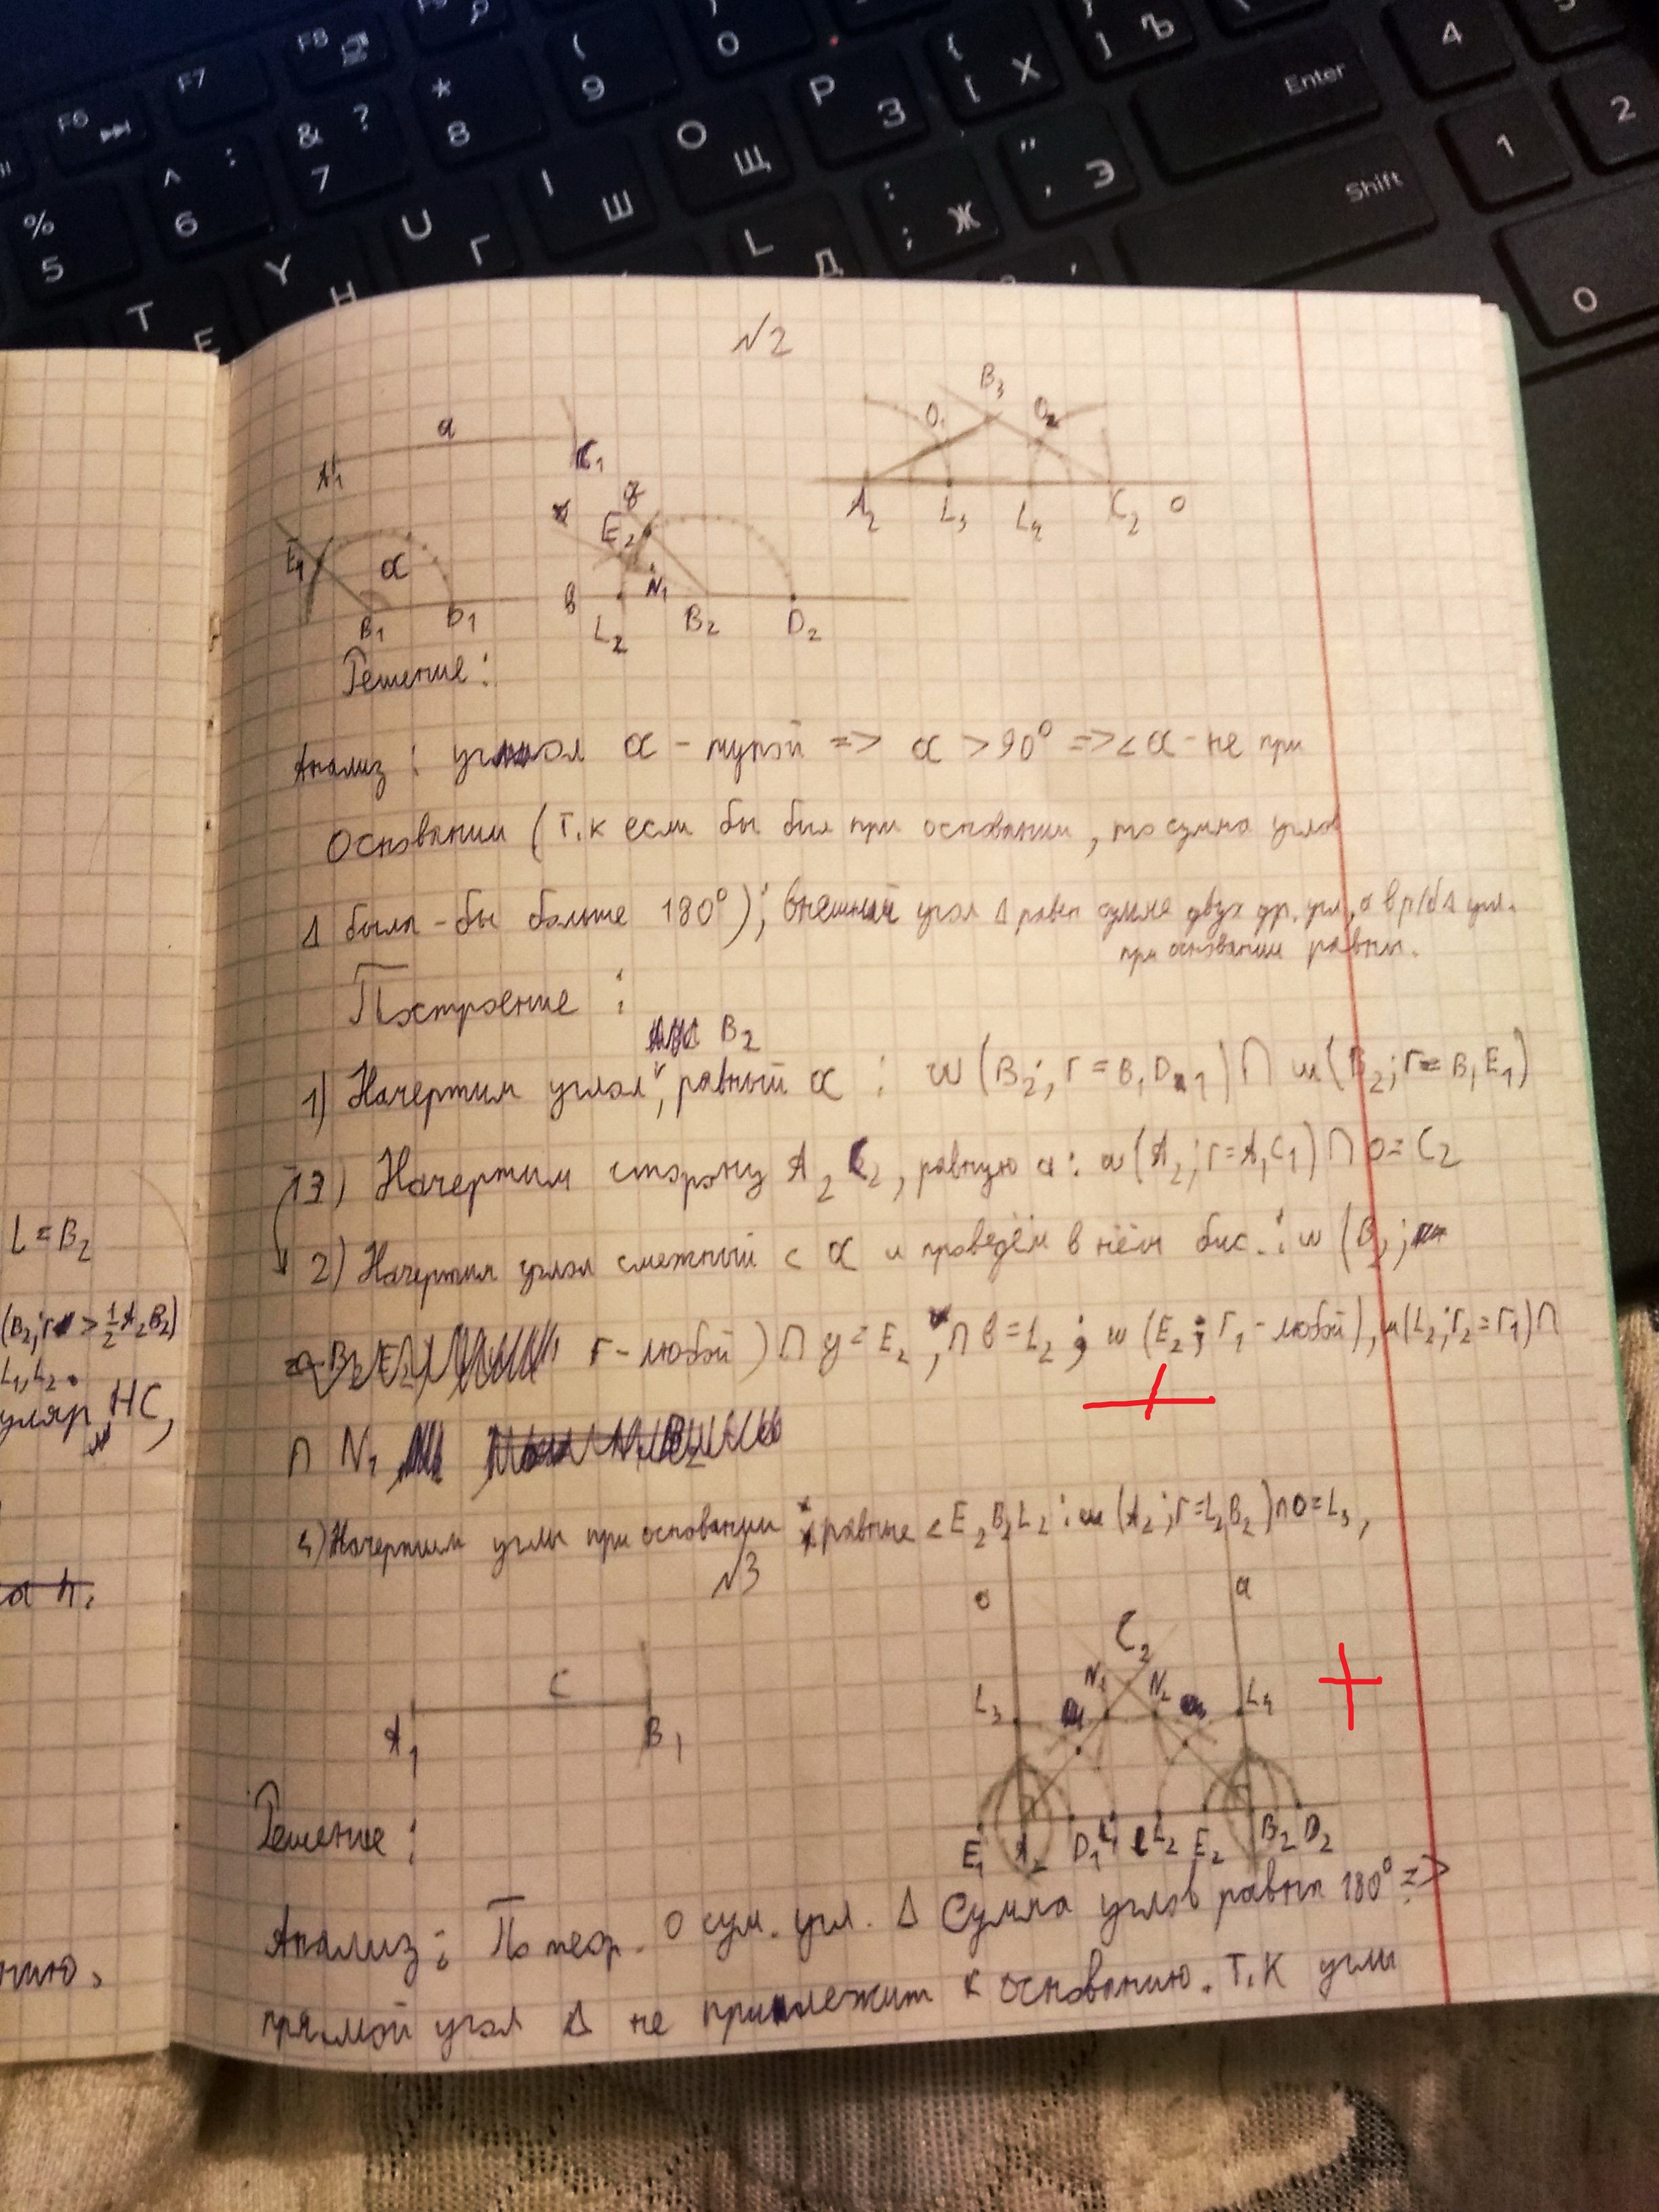 F6 F7 F8 F9
% 5 ^ : 6 & ? 7 * 8 ( 9 ) 0
T Е Y Н U Г I Ш О Щ P З { [ Х } ] Ъ Enter 4
L Д : ; Ж " ' Э Shift 1 2 3 0
√2
a
A₁ C₁
E₁ α B₁ D₁
E₂ N₁ в L₂ B₂ D₂
B₃ O₁ O₂
A₂ L₃ L₄ C₂ o
Решение:
Анализ: угол α - тупой => α > 90° => ∠α - не при
основании (т.к если бы был при основании, то сумма углов
Δ была-бы больше 180°); внешний угол Δ равен сумме двух др. угл., а в р/б Δ угл.
при основании равны.
Построение:
B₂
1) Начертим угол, равный α: w (B₂; r = B₁D₁) ∩ w (B₂; r = B₁E₁)
3) Начертим сторону A₂C₂, равную a: w (A₂; r = A₁C₁) ∩ o = C₂
2) Начертим угол смежный с α и проведём в нём бис.: w (B₂;
r - любой) ∩ y = E₂, ∩ в = L₂; w (E₂; r₁ - любой), w (L₂; r₂ = r₁) ∩
∩ N₁
4) Начертим углы при основании равные ∠E₂B₂L₂: w (A₂; r = L₂B₂) ∩ o = L₃,
√3
c
A₁ B₁
o a
C₂
L₃ N₁ N₂ L₄
E₁ A₂ D₁ L₁ L₂ E₂ B₂ D₂
Решение:
Анализ: По теор. О сум. угл. Δ Сумма углов равна 180° =>
прямой угол Δ не прилежит к основанию. Т.К углы
L = B₂
(B₂; r > ½ A₂B₂)
L₁, L₂.
HC,